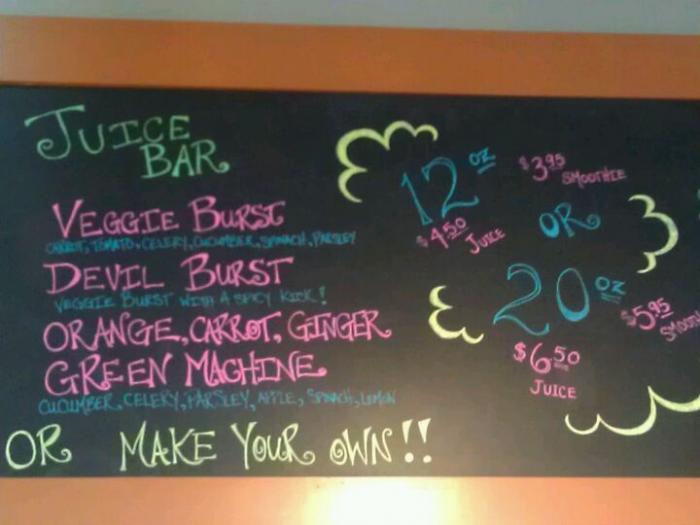 JUICE
BAR
VEGGIE BURST
CARROT, TOMATO, CELERY, CUCUMBER, SPINACH, PARSLEY
DEVIL BURST
VEGGIE BURST WITH A SPICY KICK!
ORANGE, CARROT, GINGER
GREEN MACHINE
CUCUMBER, CELERY, PARSLEY, APPLE, SPINACH, LEMON
OR MAKE YOUR OWN!!
12 oz
$3.95 SMOOTHIE
$4.50 JUICE
OR
20 oz
$5.95
$6.50
JUICE